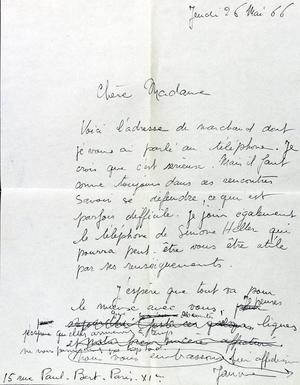 Jeudi 26 Mai 66
Chère Madame
Voici l'adresse du marchand dont
je vous ai parlé au téléphone. Je
crois que c'est sérieux. Mais il faut
comme toujours dans ces rencontres
savoir se défendre, ce que est
parfois difficile. Je joins également
le téléphone de Simone Heller qui
pourra peut-être vous être utile
par ses renseignements.
J'espère que tout va pour
le mieux avec vous,
lignes
vous embrasse
15 rue Paul-Bert. Paris. XIe